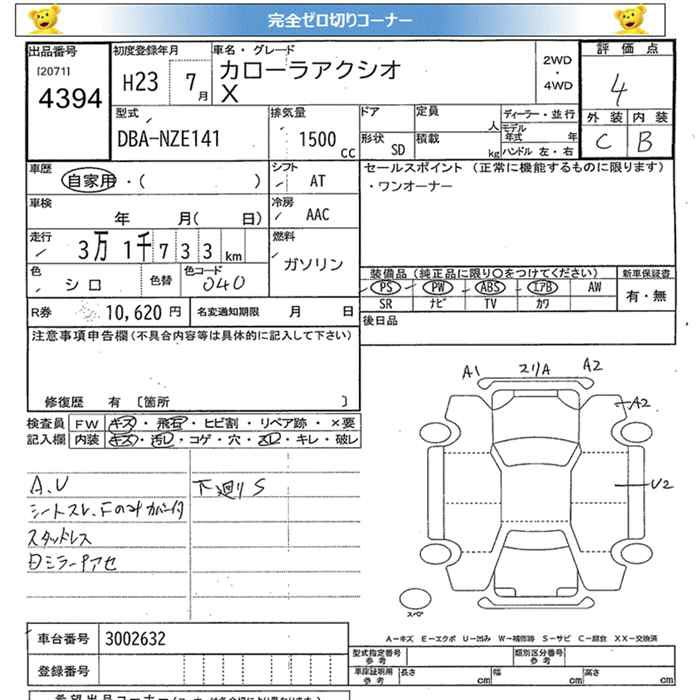 完全ゼロ切りコーナー
出品番号
[2071]
4394
初度登録年月
H23 7月
車名・グレード
カローラアクシオ
X
2WD
・
4WD
評価点
4
外装 内装
C B
型式
DBA-NZE141
排気量
1500 cc
ドア
形状 SD
定員 人
積載 kg
ディーラー・並行
モデル年式 年
ハンドル 左・右
車歴
自家用・( )
シフト
AT
セールスポイント (正常に機能するものに限ります)
・ワンオーナー
車検
年 月( 日)
冷房
AAC
走行
3万 1千 7 3 3 km
燃料
ガソリン
色
シロ
色替
色コード
040
装備品 (純正品に限り○をつけてください)
PS PW ABS エアB AW
SR ナビ TV カワ
新車保証書
有・無
R券 10,620 円
名変通知期限 月 日
後日品
注意事項申告欄(不具合内容等は具体的に記入して下さい)
修復歴 有 [箇所 ]
検査員
記入欄
FW キズ・飛石・ヒビ割・リペア跡・×要
内装 キズ・汚レ・コゲ・穴・スレ・キレ・破レ
A、U
シートスレ、Fのみカバー付
スタッドレス
下廻りS
A1 スリA A2
A2
U2
スペア
A－キズ E－エクボ U－凹み W－補修跡 S－サビ C－腐食 XX－交換済
車台番号 3002632
登録番号
型式指定番号
参考
類別区分番号
参考
車庫証明用
参考
長さ cm 幅 cm 高さ cm
希望出品コーナー